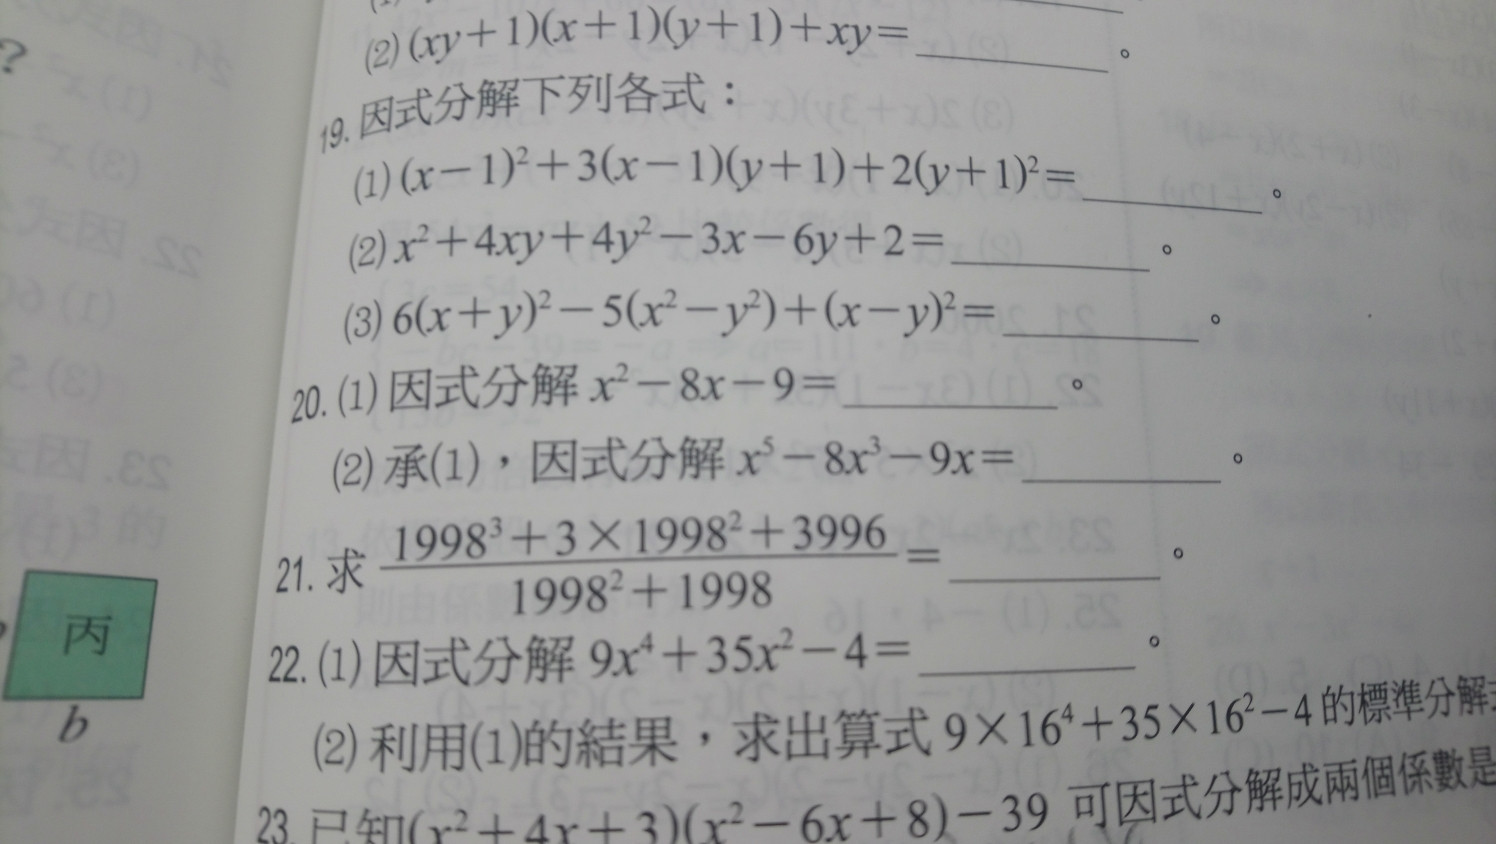 (2)(xy+1)(x+1)(y+1)+xy=________。
19. 因式分解下列各式：
(1)(x−1)²+3(x−1)(y+1)+2(y+1)²=________。
(2)x²+4xy+4y²−3x−6y+2=________。
(3)6(x+y)²−5(x²−y²)+(x−y)²=________。
20. (1)因式分解 x²−8x−9=________。
(2)承(1)，因式分解 x⁵−8x³−9x=________。
21. 求 (1998³+3×1998²+3996)/(1998²+1998) =________。
22. (1)因式分解 9x⁴+35x²−4=________。
(2)利用(1)的結果，求出算式 9×16⁴+35×16²−4 的標準分解
23. 已知(x²+4x+3)(x²−6x+8)−39 可因式分解成兩個係數是
?
丙
b